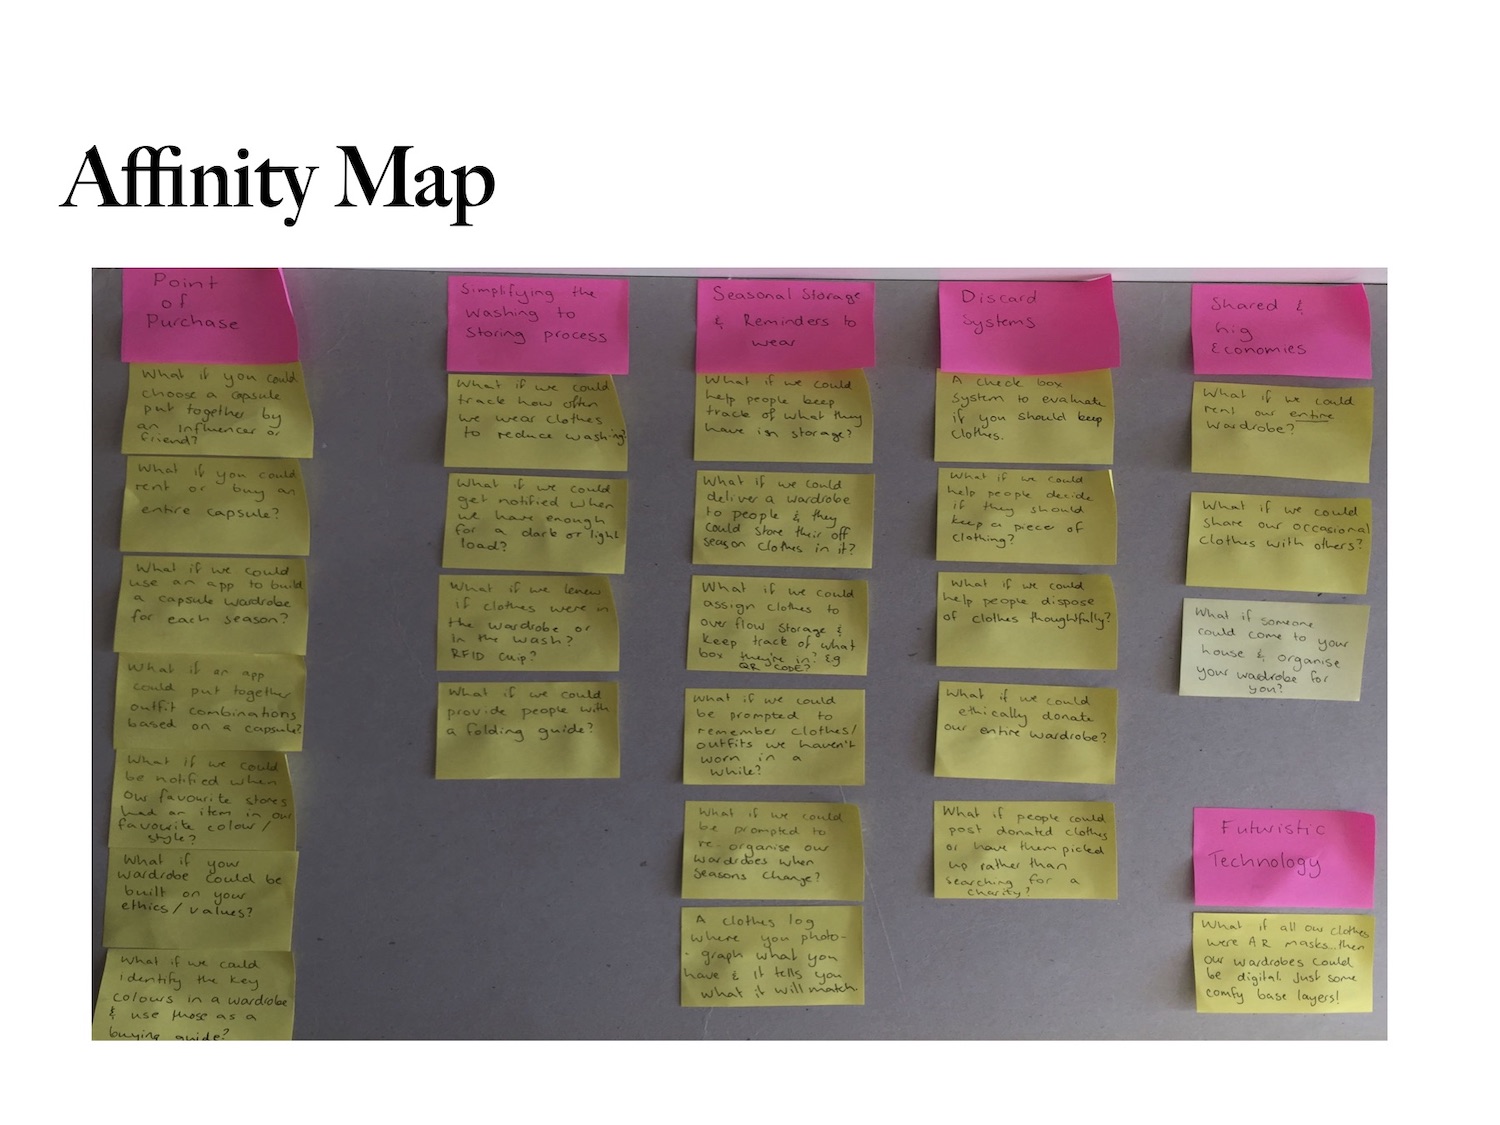 Affinity Map
Point
of
Purchase
What if you could
choose a capsule
put together by
an influencer or
friend?
What if you could
rent or buy an
entire capsule?
What if we could
use an app to build
a capsule wardrobe
for each season?
What if an app
could put together
outfit combinations
based on a capsule?
What if we could
be notified when
our favourite stores
had an item in our
favourite colour/
style?
What if your
wardrobe could be
built on your
ethics/values?
What if we could
identify the key
colours in a wardrobe
& use those as a
buying guide?
Simplifying the
washing to
storing process
What if we could
track how often
we wear clothes
to reduce washing?
What if we could
get notified when
we have enough
for a dark or light
load?
What if we knew
if clothes were in
the wardrobe or
in the wash?
RFID chip?
What if we could
provide people with
a folding guide?
Seasonal Storage
& Reminders to
wear
What if we could
help people keep
track of what they
have in storage?
What if we could
deliver a wardrobe
to people & they
could store their off
season clothes in it?
What if we could
assign clothes to
overflow storage &
keep track of what
box they're in? Eg
QR CODE?
What if we could
be prompted to
remember clothes/
outfits we haven't
worn in a
while?
What if we could
be prompted to
re-organise our
wardrobes when
seasons change?
A clothes log
where you photo-
-graph what you
have & it tells you
what it will match.
Discard
Systems
A check box
system to evaluate
if you should keep
clothes.
What if we could
help people decide
if they should
keep a piece of
clothing?
What if we could
help people dispose
of clothes thoughtfully?
What if we could
ethically donate
our entire wardrobe?
What if people could
post donated clothes
or have them picked
up rather than
searching for a
charity?
Shared &
Gig
Economies
What if we could
rent our entire
wardrobe?
What if we could
share our occasional
clothes with others?
What if someone
could come to your
house & organise
your wardrobe for
you?
Futuristic
Technology
What if all our clothes
were AR masks...then
our wardrobes could
be digital. Just some
comfy base layers!